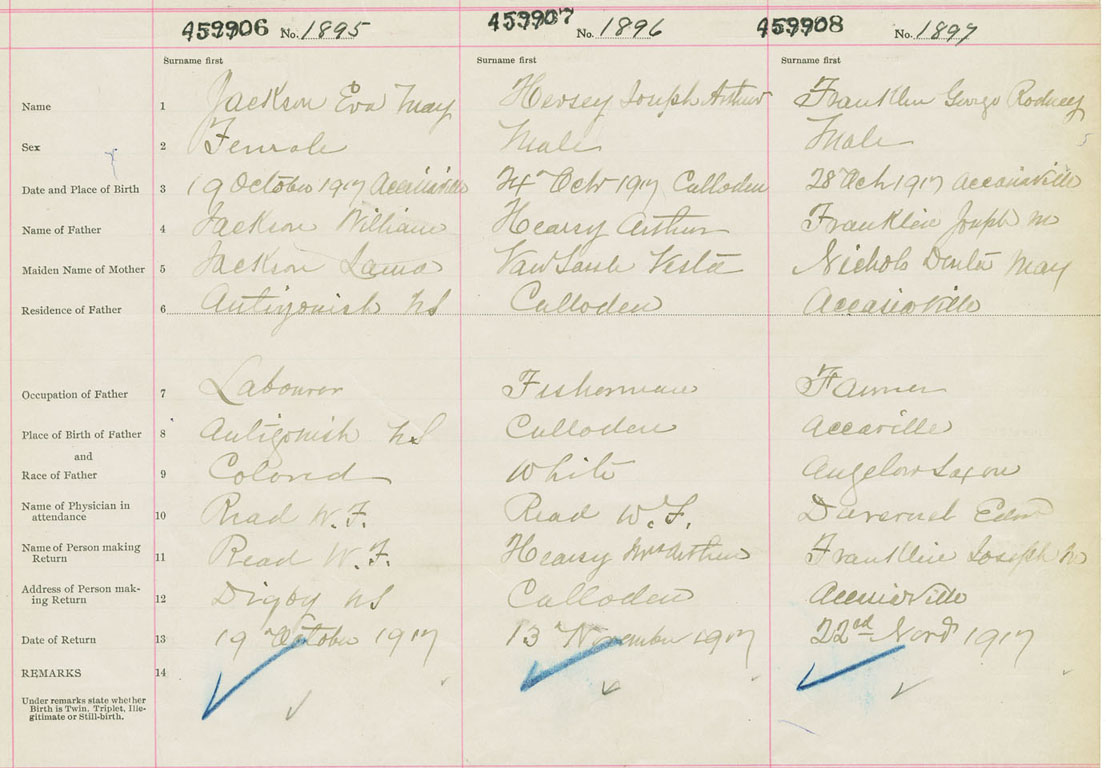 459906 No. 1895 459907 No. 1896 459908 No. 1897
Surname first Surname first Surname first
Name 1 Jackson Eva May Hersey Joseph Arthur Franklin George Rodney
Sex 2 Female Male Male
Date and Place of Birth 3 19 October 1917 24 Octr 1917 Culloden 28 Oct 1917 Accaciaville
Name of Father 4 Jackson William Hearsy Arthur Franklin Joseph M
Maiden Name of Mother 5 Jackson Vesta Nichols May
Residence of Father 6 Antigonish NS Culloden
Occupation of Father 7 Labourer Fisherman Farmer
Place of Birth of Father 8 Antigonish NS Culloden Accaville
and
Race of Father 9 Colored White Angelow Saxon
Name of Physician in
attendance 10 Read W. F. Read W. F.
Name of Person making
Return 11 Read W. F. Hearsy Mrs Arthur Franklin Joseph M
Address of Person mak-
ing Return 12 Digby NS Culloden
Date of Return 13 19 October 1917 13 November 1917 22nd 1917
REMARKS 14
Under remarks state whether
Birth is Twin, Triplet, Ille-
gitimate or Still-birth.